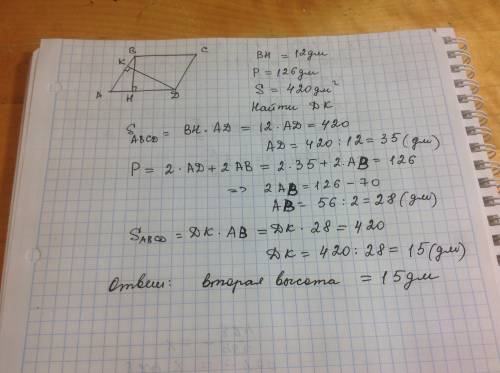 B C
K
A H D
BH = 12 дм
P = 126 дм
S = 420 дм²
Найти ДК
S ABCD = BH · AD = 12 · AD = 420
AD = 420 : 12 = 35 (дм)
P = 2 · AD + 2 AB = 2 · 35 + 2 · AB = 126
=> 2 AB = 126 - 70
AB = 56 : 2 = 28 (дм)
S ABCD = ДК · AB = ДК · 28 = 420
ДК = 420 : 28 = 15 (дм)
Ответ: вторая высота = 15 дм